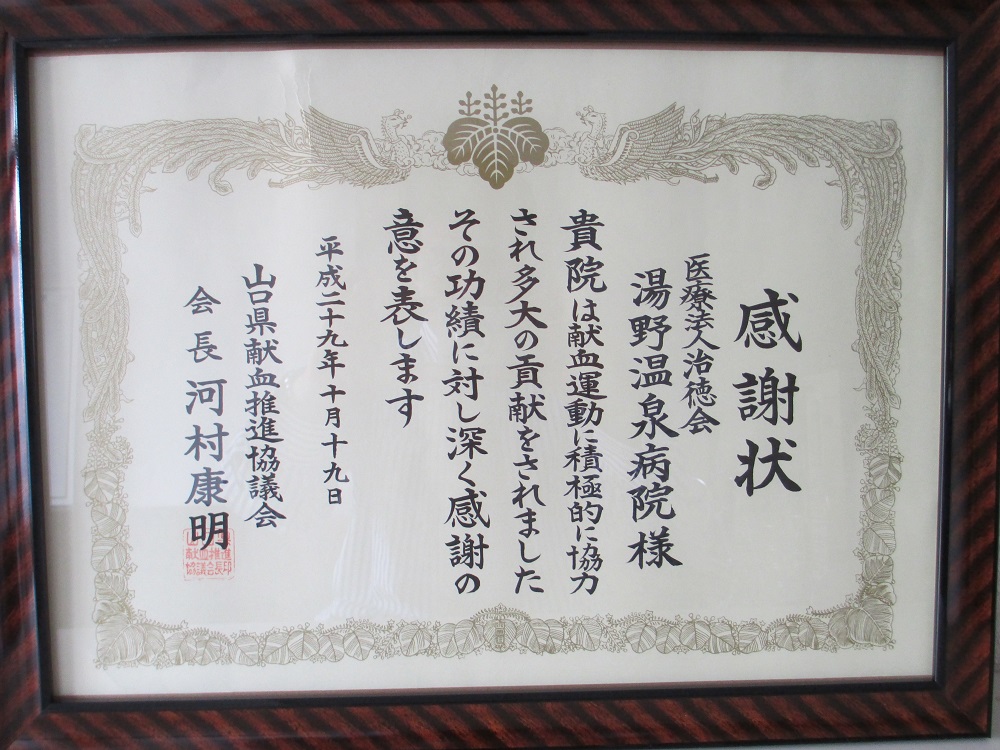 感謝状
医療法人治徳会
湯野温泉病院様
貴院は献血運動に積極的に協力
され多大の貢献をされました
その功績に対し深く感謝の
意を表します
平成二十九年十月十九日
山口県献血推進協議会
会長 河村康明